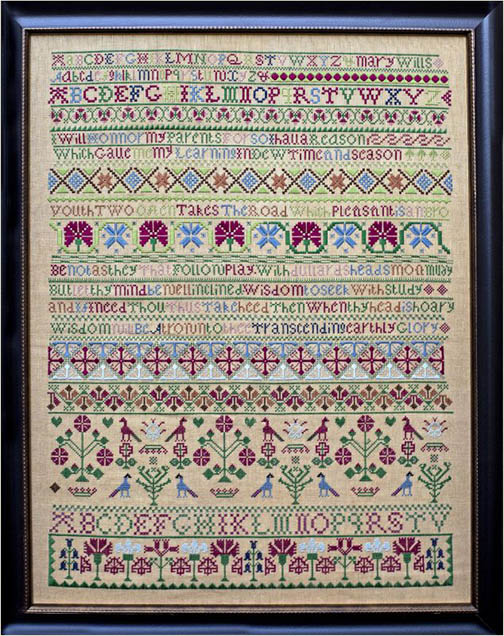 ABCDEFGHIKLMNOPQ STVWXYZ4 Mary Wills
Aabcdefghiklmnopqrstuvxyz4
ABCDEFGHIKLMNOPQRSTVWXYZ
Will onnor My Parents For so I haua Reason
Which Gaue me My Learning In Dew Time And season
youth TWO Takes The Road Which Pleasant is
Be not as they That Follon Play With dullards heads
But let thy mind be Wellinclined Wisdom to seek With study
and if need Thou Thus Take heed Then When thy head is hoary
Wisdom Be A tronn to thee Transcending earthly Glory
ABCDEFGHIKLMNOPQRSTV